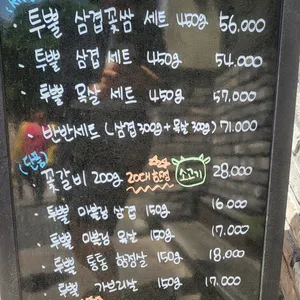 · 투뿔 삼겹꽃쌈 세트 450g 56.000
· 투뿔 삼겹 세트 450g 54.000
· 투뿔 목살 세트 450g 57.000
· 반반세트 (삼겹 300g + 목살 300g) 71.000
(단품)
· 꽃갈비 200g 소고기 28.000
· 투뿔 미붐 삼겹 150g 16.000
· 투뿔 목살 150g 17.000
· 투뿔 통통 항정살 150g 18.000
· 투뿔 가브리살 150g 17.000